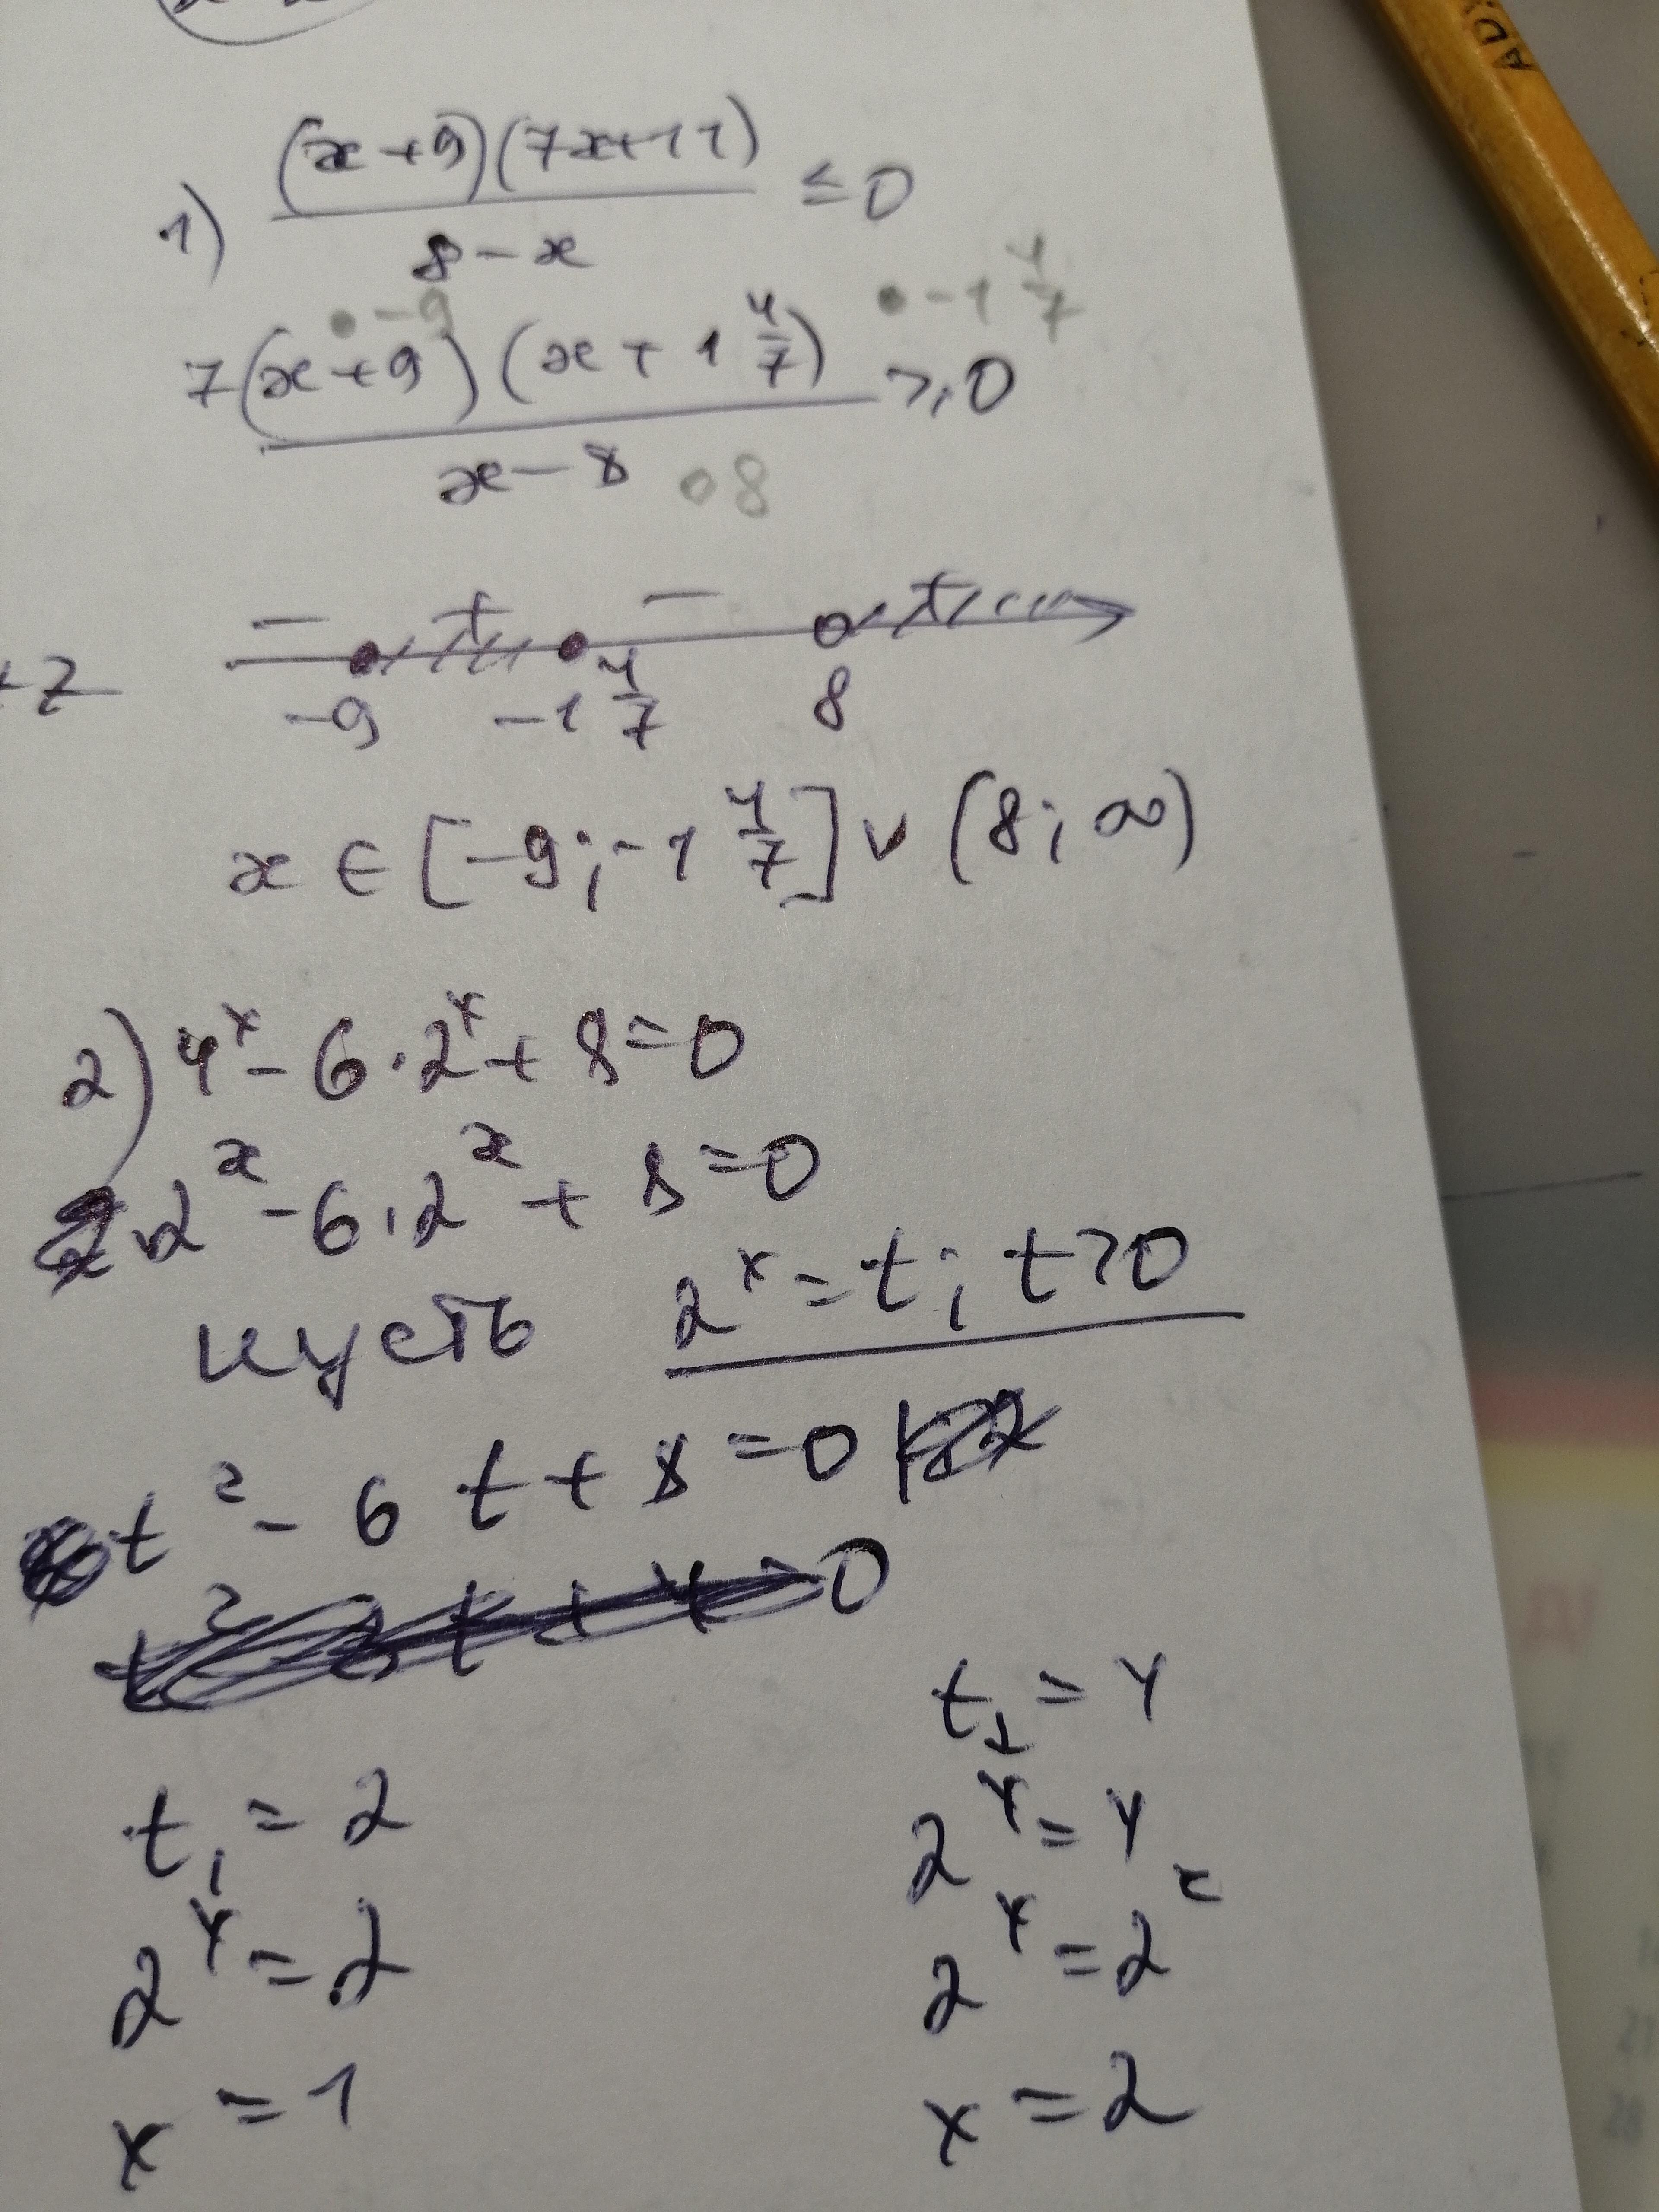 1) (x+9)(7x+11) / 8-x ≤ 0
• -9 • -1 4/7
7(x+9)(x+1 4/7) / x-8 ≥ 0
∘8
- + - +
+2
-9 -1 4/7 8
x ∈ [-9; -1 4/7] ∨ (8; ∞)
2) 4^x - 6·2^x + 8 = 0
2·2^x - 6·2^x + 8 = 0
пусть 2^x = t; t>0
t² - 6t + 8 = 0
t₂ = 4
t₁ = 2
2^x = 4
2^x = 2
2^x = 2²
x = 1
x = 2
AD